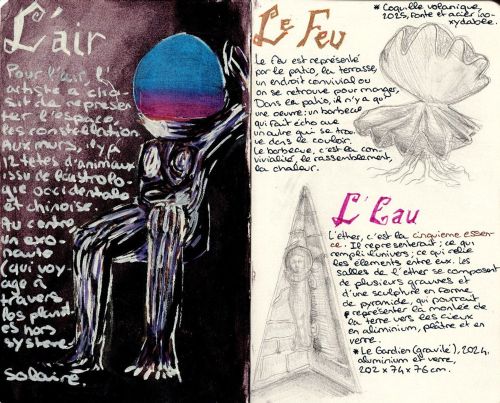 L'air
Pour l'air l'
artiste a choi-
sit de représen-
ter l'espace,
les constellation.
Aux murs, il y a
12 têtes d'animaux
issu de l'astrolo-
gie occidentale
et chinoise.
Au centre,
un exo-
naute
(qui voy-
age à
travers
les planèt
es hors
système
solaire.
Le Feu
Le feu est représenté
par le patio, la terrasse,
un endroit convivial ou
on se retrouve pour manger,
Dans le patio, il n'y a qu'
une oeuvre: un barbecue
qui fait écho avec
un autre qui se trou-
ve dans le couloir.
Le barbecue, c'est la con-
vivialité, le rassemblement,
la chaleur.
* Coquille volcanique,
2025, fonte et acier ino-
xydable.
L'Eau
L'éther, c'est la cinquieme essen-
ce. Il representerait: ce qui
rempli l'univers; ce qui relie
les éléments entre eux. Les
salles de l'éther se composent
de plusieurs gravures et
d'une sculpture en forme
de pyramide, qui pourrait
représenter la montée de
la terre vers les cieux
en aliminium, plâtre et en
verre.
* Le Gardien (gravité), 2024,
aluminium et verre,
202 x 74 x 76 cm.